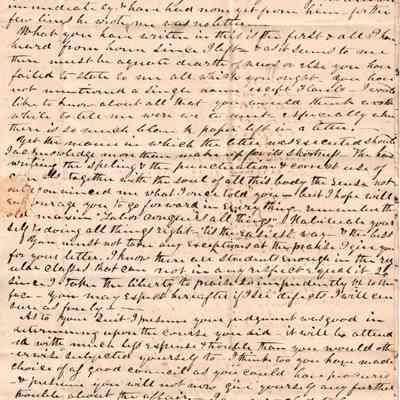 immediately & have had none yet from him — for the
few lines he wrote me was no letter
What you have written in this is the first & all I have
heard from home since I left — & as it seems to me
there must be a great dearth of news or else you have
failed to state to me all which you ought. You have
not mentioned a single name except I would
like to know about all that you would think worth
while to tell me were we to meet especially when
there is so much blank paper left in a letter.
Yet the manner in which the letter was executed should
I acknowledge more than make up for its shortness. The hand
writing the spelling the punctuation & correct use of
together with the soul of all this body the sense not
only convinced me what I once told you — but I hope will
encourage you to go forward in everything — remember the
maxim "Labor conquers all things" Habituate your
self to doing all things right 'tis the easiest way & the best
You must not take any exceptions at the praise I give you
for your letter. I know there are students enough in the
classes that can not in any respect equal it &
since I take the liberty to praise so impudently to the
face — you may expect hereafter if I see defects I will cen
sure as freely —
As to your suit I presume your judgment was good in
determining upon the course you did — it will be attend
ed with much less expense & trouble than you would oth
erwise subjected yourself to. I think too you have made
choice of as good council as you could have procured
& presume you will not now give yourself any further
trouble about the affair.